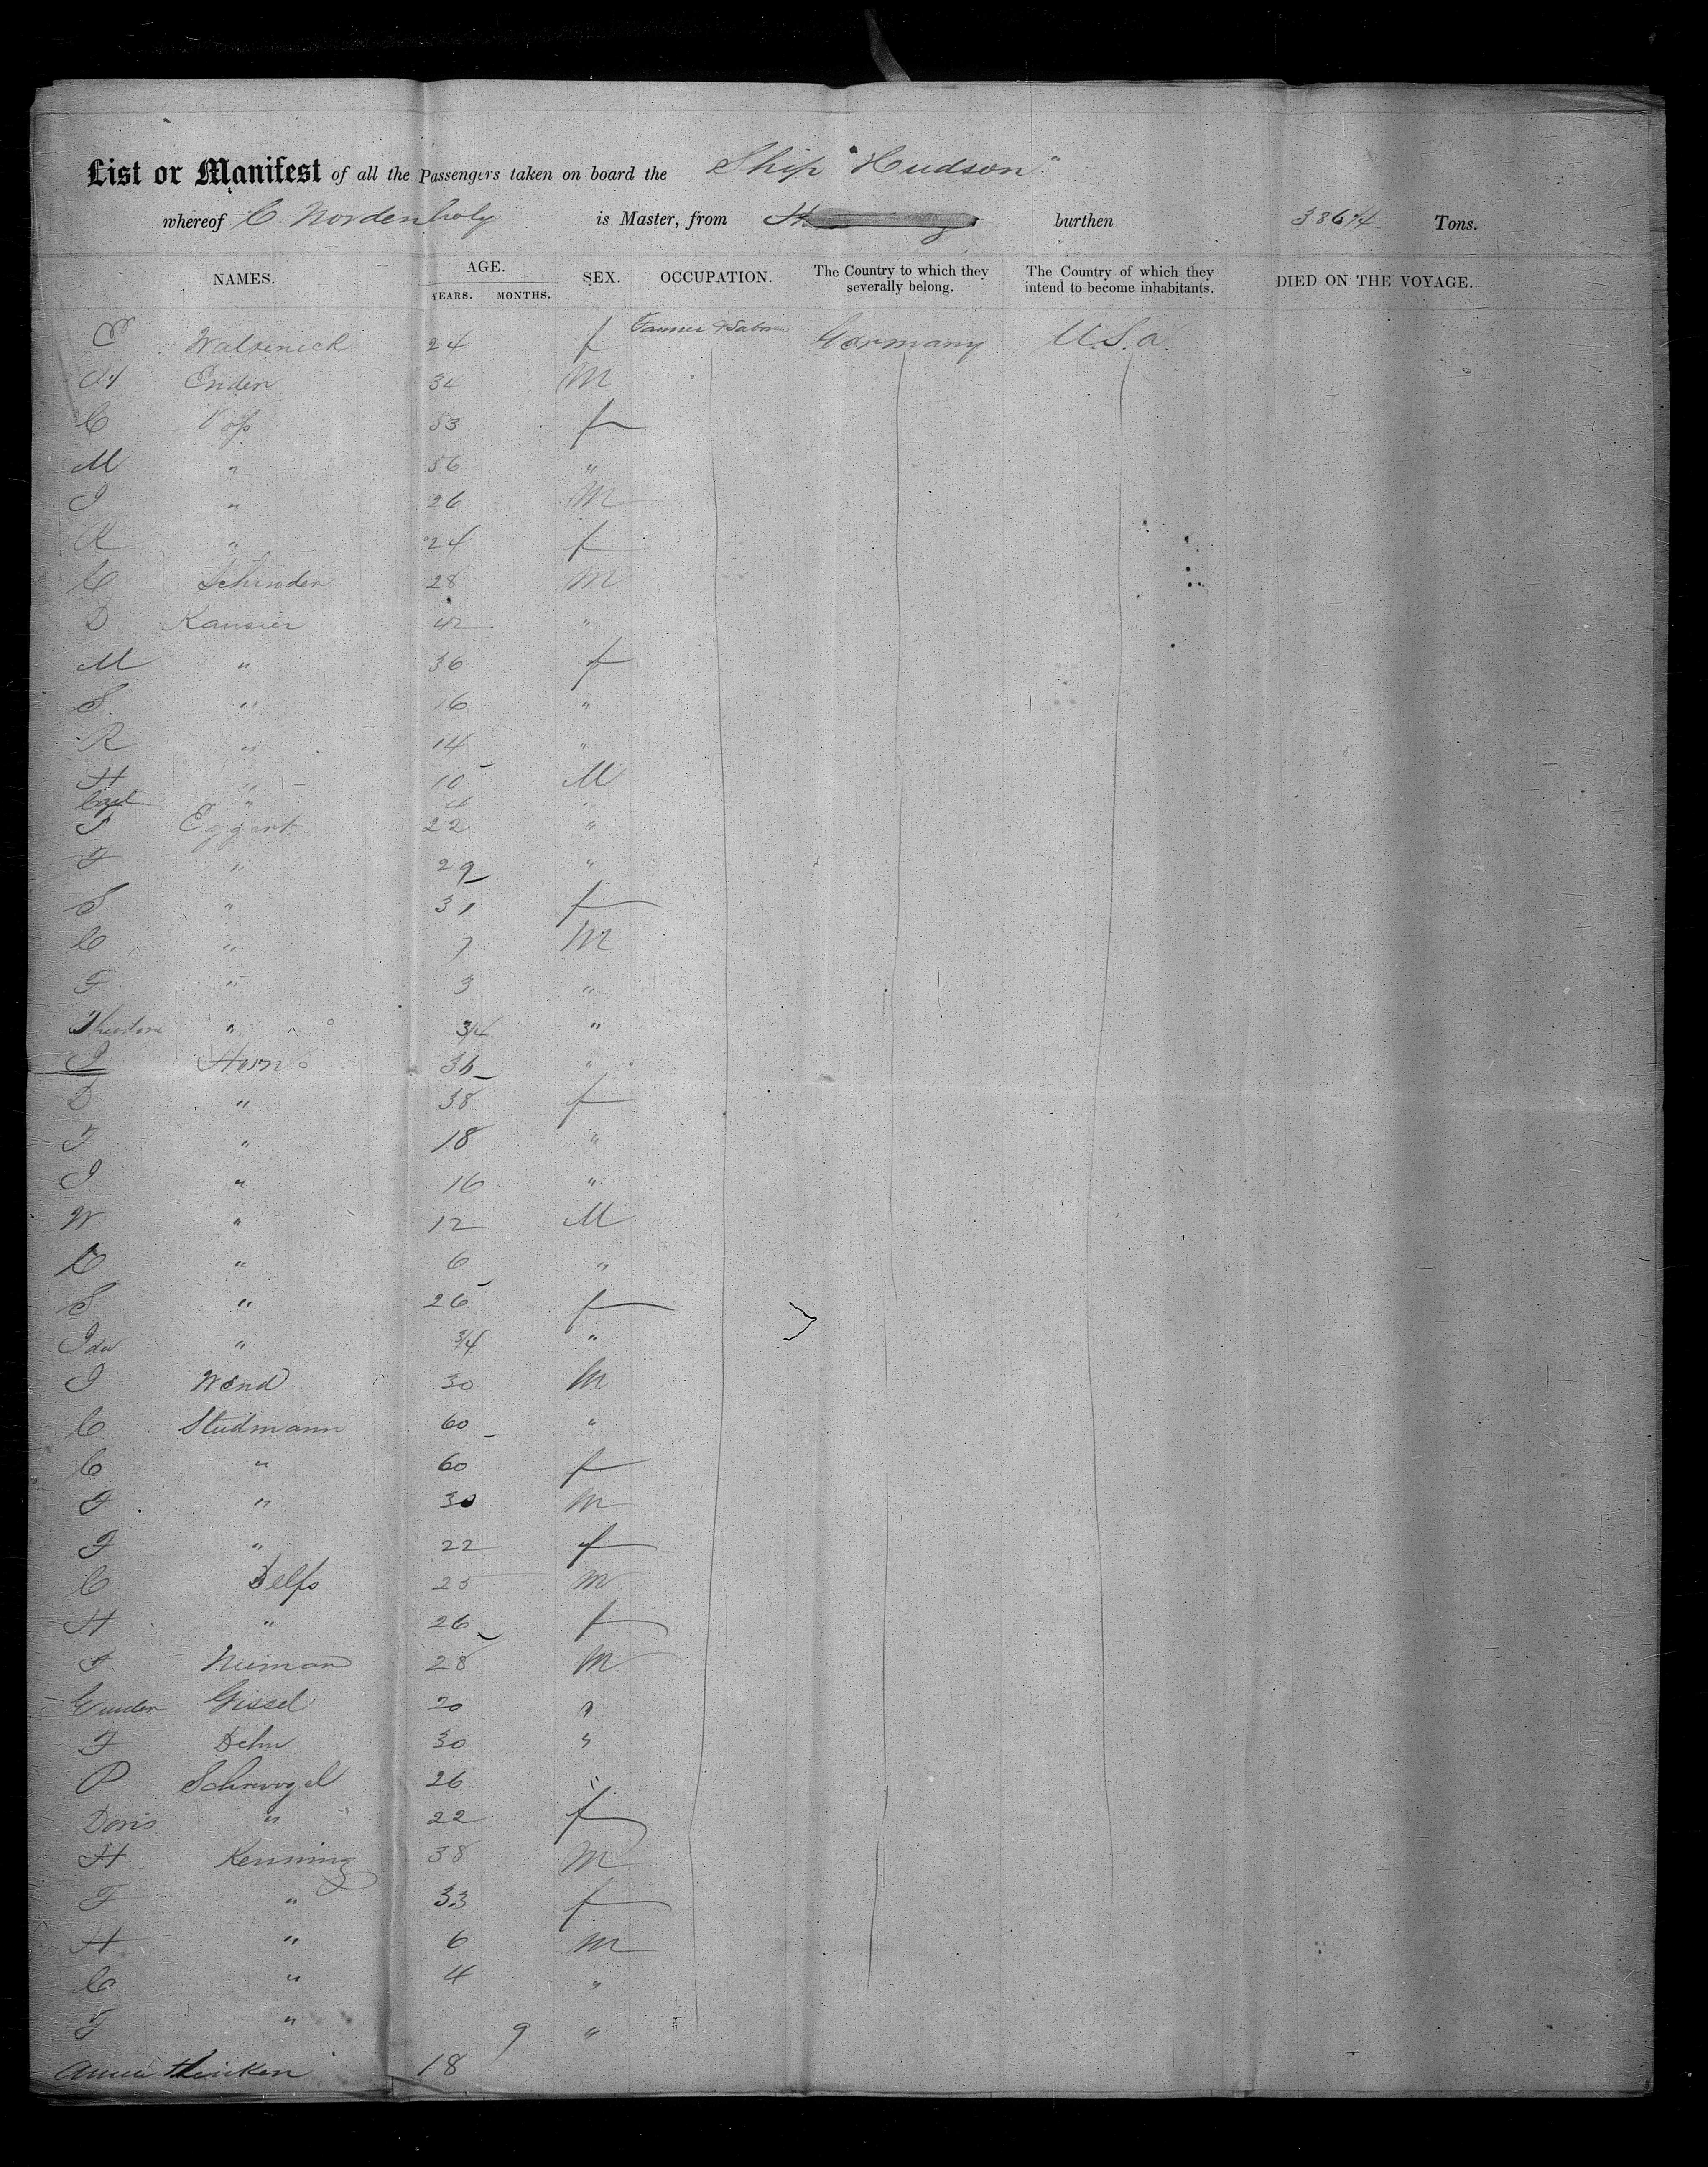 List or Manifest of all the Passengers taken on board the Ship "Hudson"
whereof C. Nordenholy is Master, from burthen Tons.
NAMES. AGE. YEARS. MONTHS. SEX. OCCUPATION. The Country to which they severally belong. The Country of which they intend to become inhabitants. DIED ON THE VOYAGE.
E 24 f Germany U.S.a.
Enden M
C Voß 53 f
M " 56 "
I " 26 M
R " 24 f
C 28 M
D Kansier 42 "
M " 36 f
S " 16 "
R " 14 "
H " 10 M
Carl " 4 "
F Eggert 22 "
F " 29 "
S " 31 f
C " 7 M
F " 3 "
Theodore " 3/4 "
I Horn 36 "
D " 38 f
F " 18 "
I " 16 "
W " 12 M
C " 6 "
S " 26 f
Ida " 3/4 "
I Wend 30 M
C Studmann 60 "
C " 60 f
F " 30 M
F " 22 f
C Delfs 25 M
H " 26 f
F Nieman 28 M
Gissel 20 "
F Dehn 30 "
P 26 "
Doris " 22 f
H Kenning 38 M
F " 33 f
H " 6 M
C " 4 "
F " 9 "
Anna Heinken 18